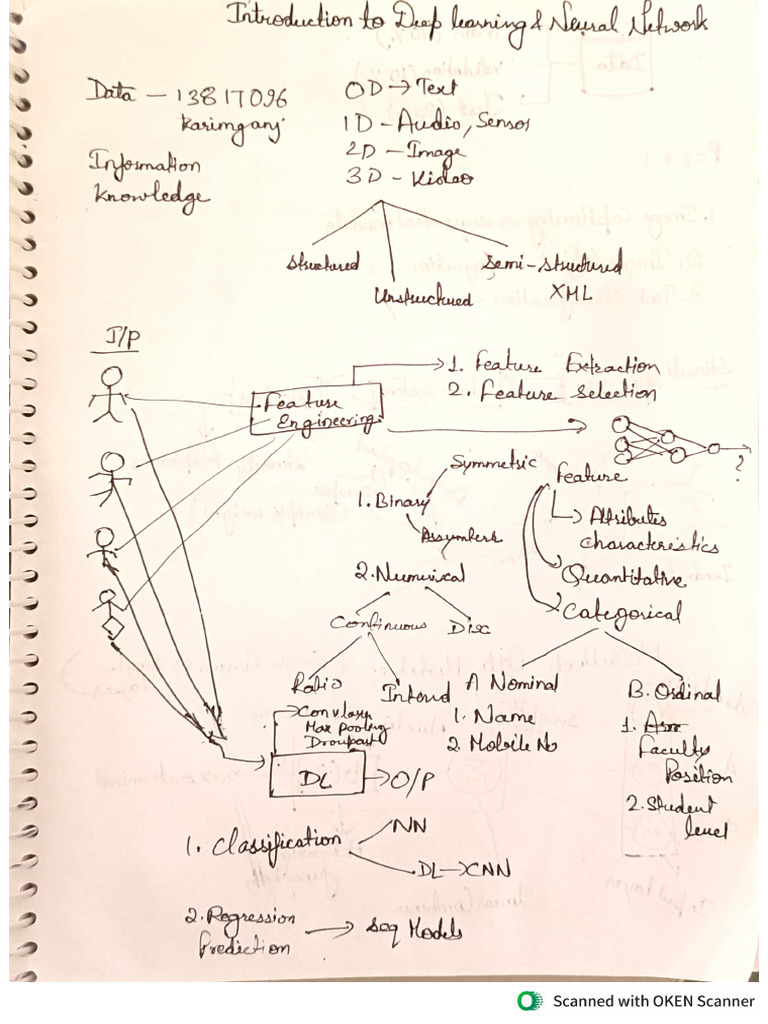 Introduction to Deep learning & Neural Network
Data - 13817096
Karimganj
Information
Knowledge
0D → Text
1D - Audio, Sensor
2D - Image
3D - Video
Structured
Unstructured
Semi-structured
XML
I/P
Feature
Engineering
1. Feature Extraction
2. Feature Selection
?
Symmetric
1. Binary
Assymteric
2. Numerical
Continuous
Disc
Ratio
Feature
Attributes
characteristics
Quantitative
Categorical
A Nominal
1. Name
2. Mobile No
B. Ordinal
1.
Faculty
Position
2. Student
level
Max pooling
DL → O/P
1. Classification
NN
DL → CNN
2. Regression
Prediction
→ Seq Models
Scanned with OKEN Scanner